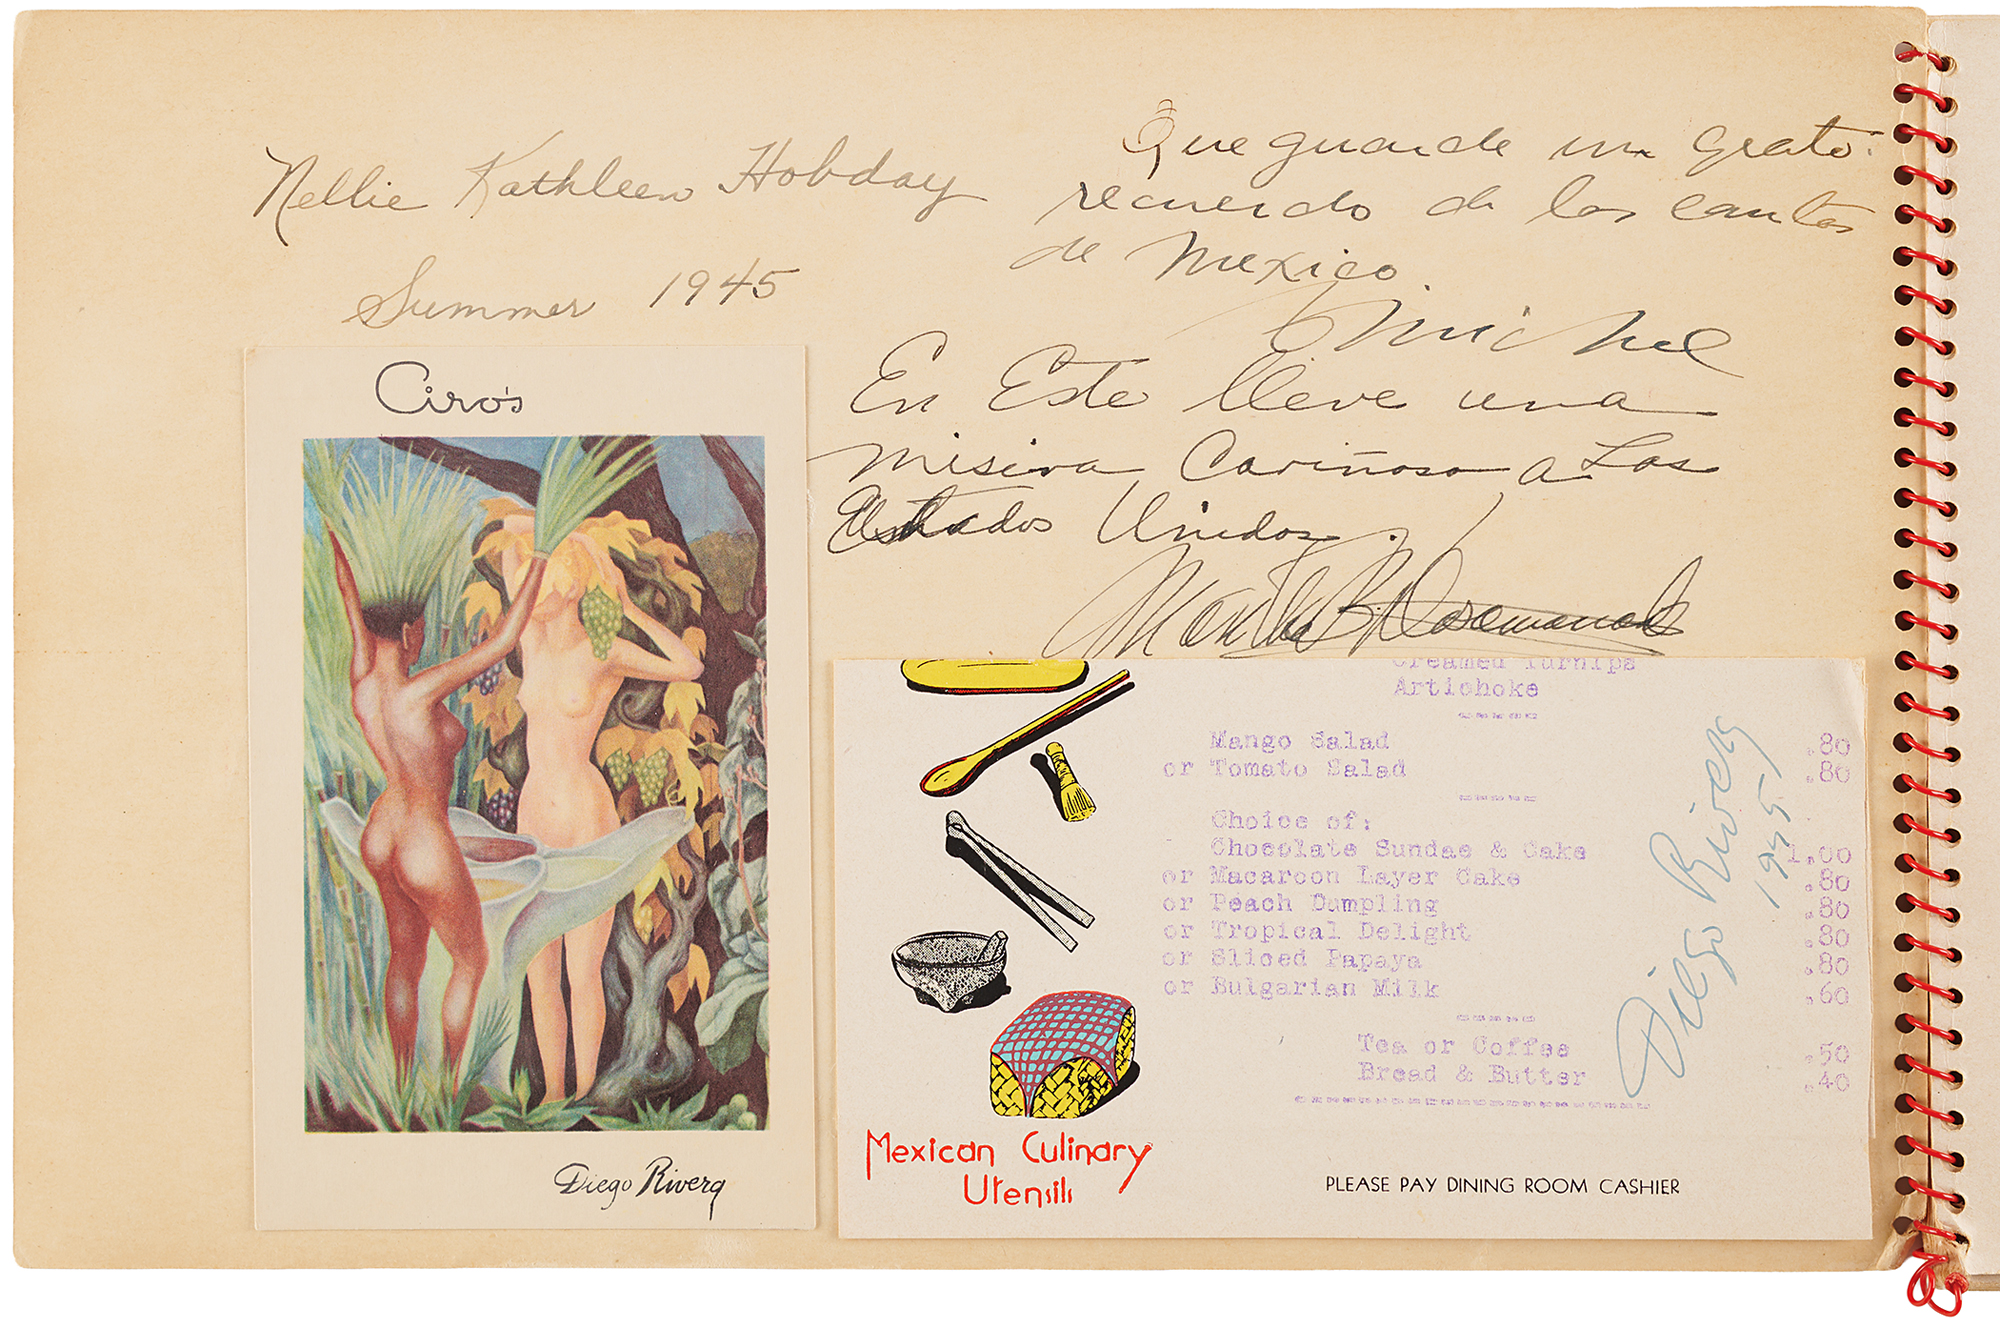 Nellie Kathleen Hobday
Summer 1945
Que guarde un grato
recuerdo de los cantos
de Mexico.
Michel
En Este lleve una
misiva Cariñosa a Los
Estados Unidos.
Ciro's
Diego Rivera
Creamed Turnips
Artichoke
Mango Salad .80
or Tomato Salad .80
Choice of:
Chocolate Sundae & Cake 1.00
or Macaroon Layer Cake .80
or Peach Dumpling .80
or Tropical Delight .80
or Sliced Papaya .80
or Bulgarian Milk .60
Tea or Coffee .50
Bread & Butter .40
Diego Rivera
1945
Mexican Culinary
Utensils
PLEASE PAY DINING ROOM CASHIER